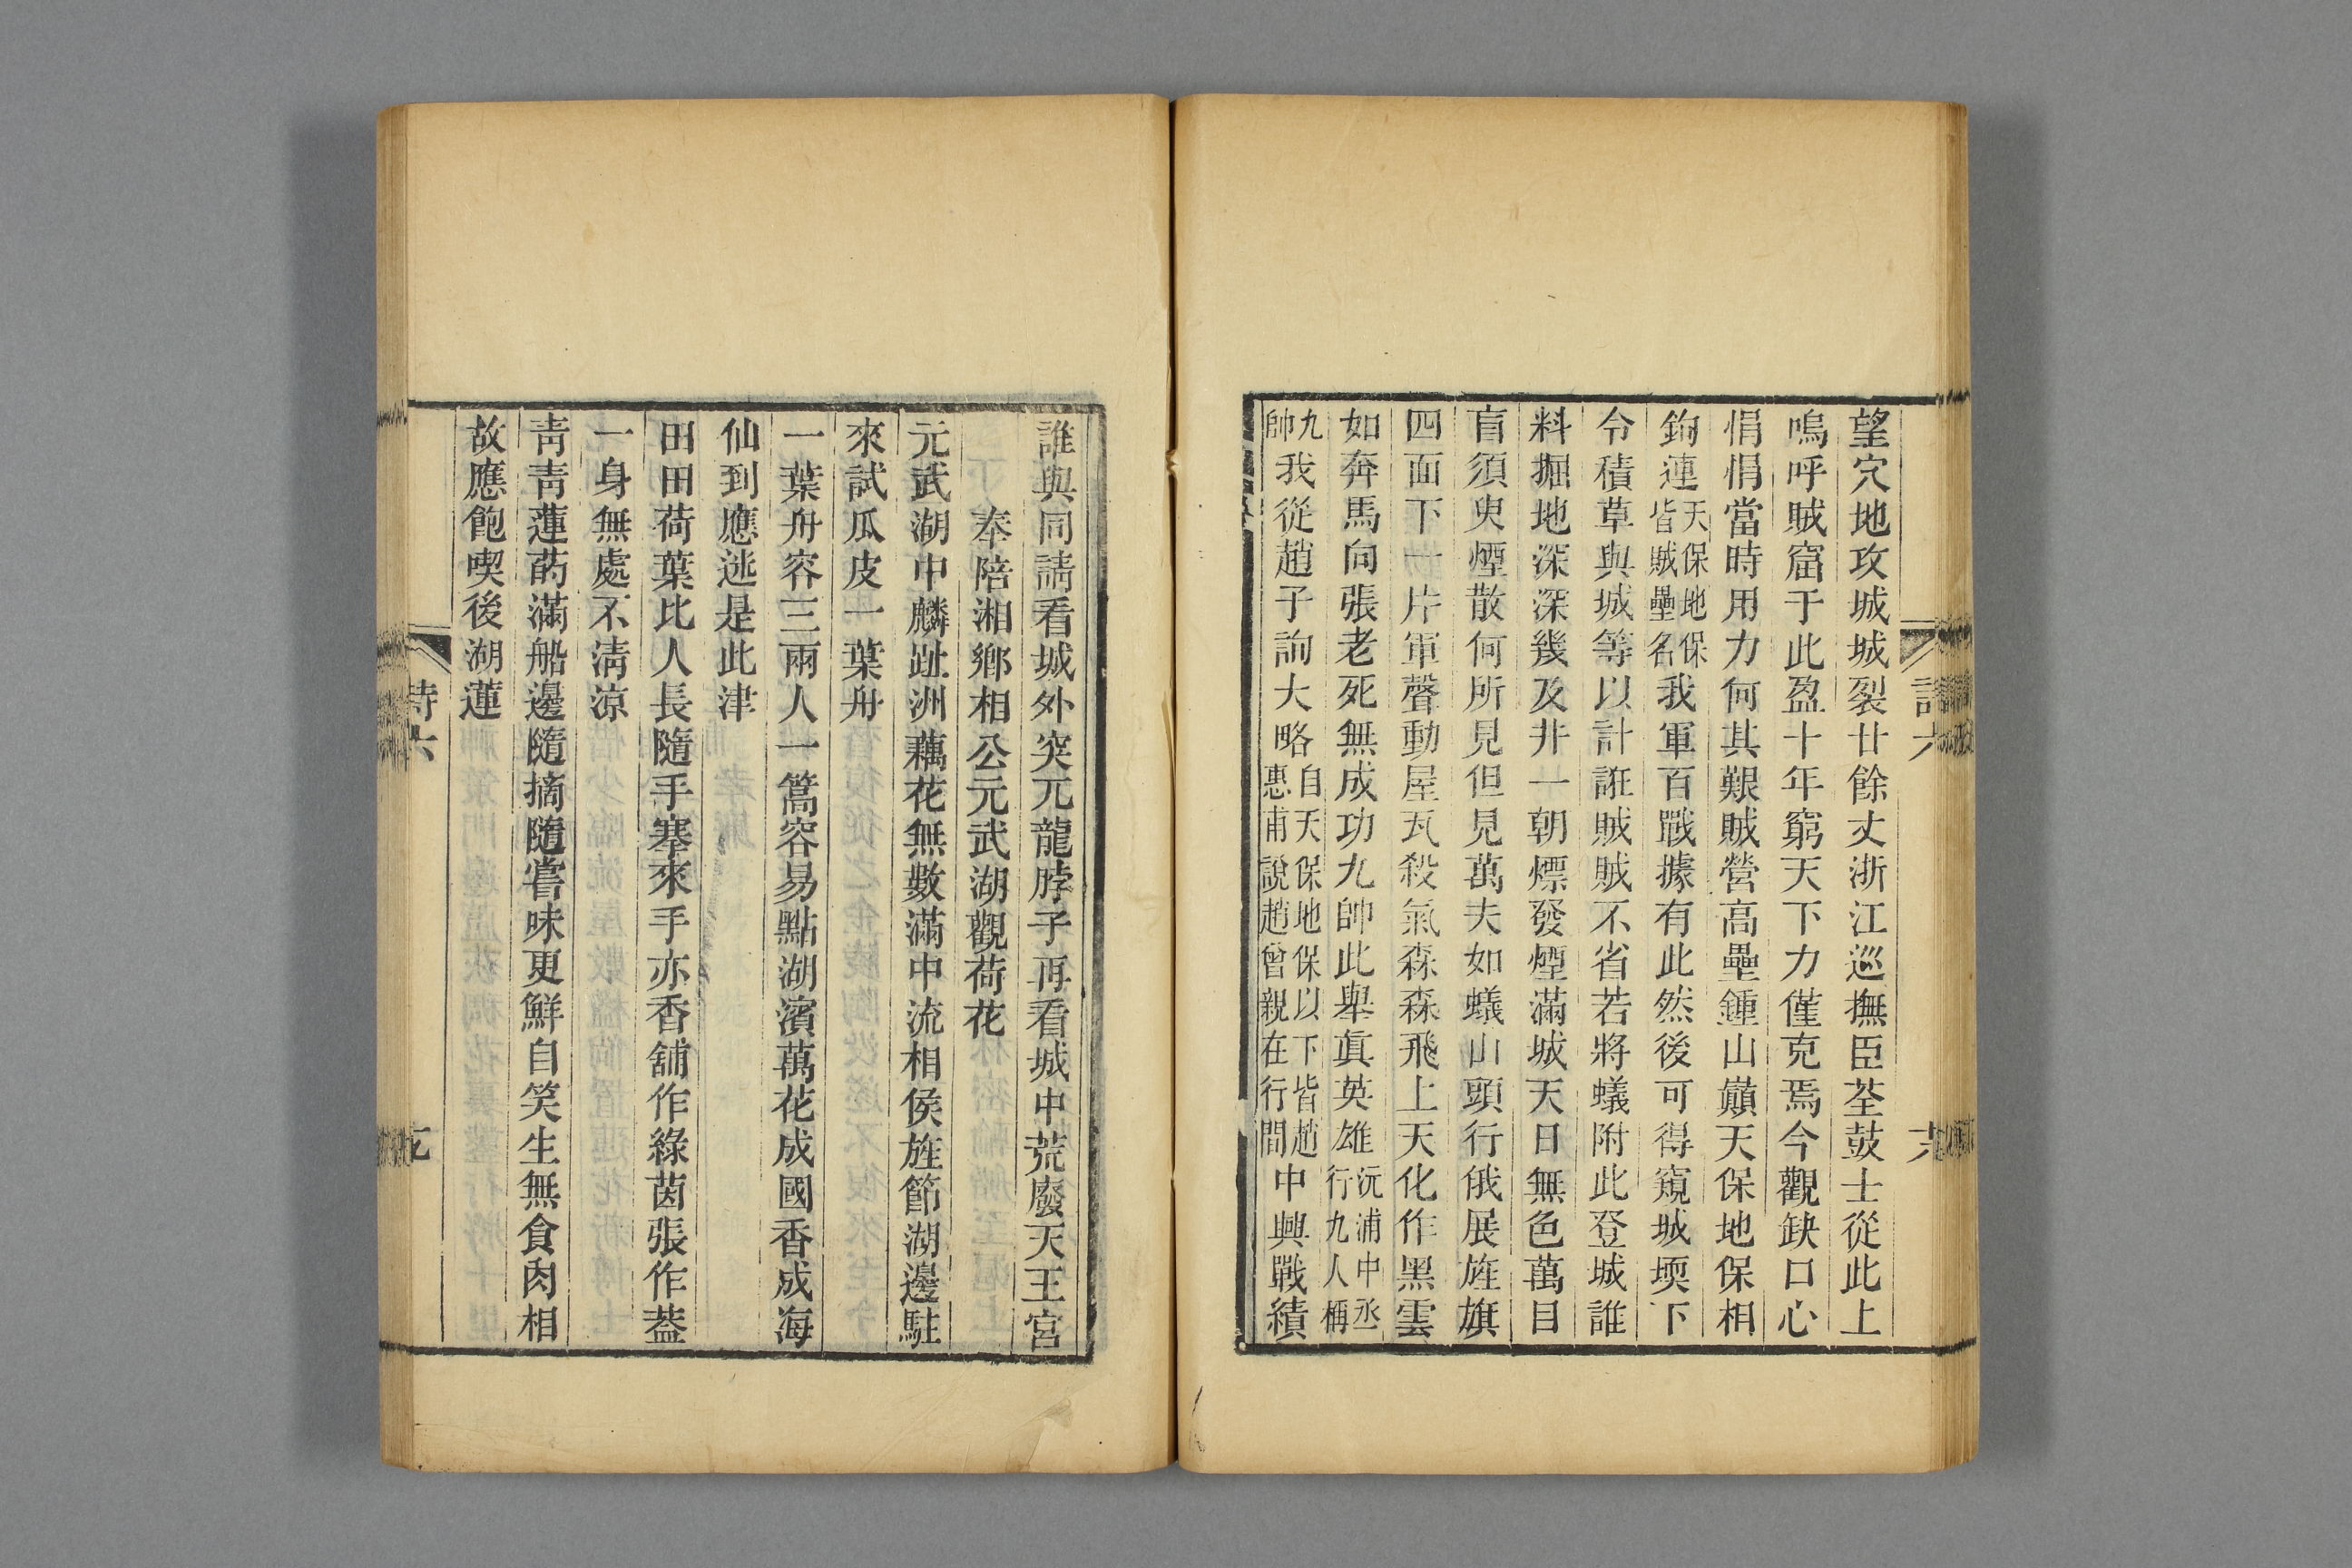 望穴地攻城城裂廿餘丈浙江巡撫臣荃鼓士從此上
嗚呼賊窟于此盈十年窮天下力僅克焉今觀缺口心
悁悁當時用力何其艱賊營高壘鍾山巔天保地保相
鉤連天保地保皆賊壘名我軍百戰據有此然後可得窺城堧下
令積草與城等以計誑賊賊不省若將蟻附此登城誰
料掘地深深幾及井一朝㷼發煙滿城天日無色萬目
盲須臾煙散何所見但見萬夫如蟻山頭行俄展旌旗
四面下一片軍聲動屋瓦殺氣森森飛上天化作黑雲
如奔馬向張老死無成功九帥此舉眞英雄沅浦中丞行九人稱
九帥我從趙子詢大略自天保地保以下皆趙惠甫說趙曾親在行間中興戰績
詩六
六
誰與同請看城外突兀龍脖子再看城中荒廢天王宮
奉陪湘鄉相公元武湖觀荷花
元武湖中麟趾洲藕花無數滿中流相侯旌節湖邊駐
來試瓜皮一葉舟
一葉舟容三兩人一篙容易點湖濱萬花成國香成海
仙到應迷是此津
田田荷葉比人長隨手搴來手亦香舖作綠茵張作葢
一身無處不淸涼
靑靑蓮菂滿船邊隨摘隨嘗味更鮮自笑生無食肉相
故應飽喫後湖蓮
詩六